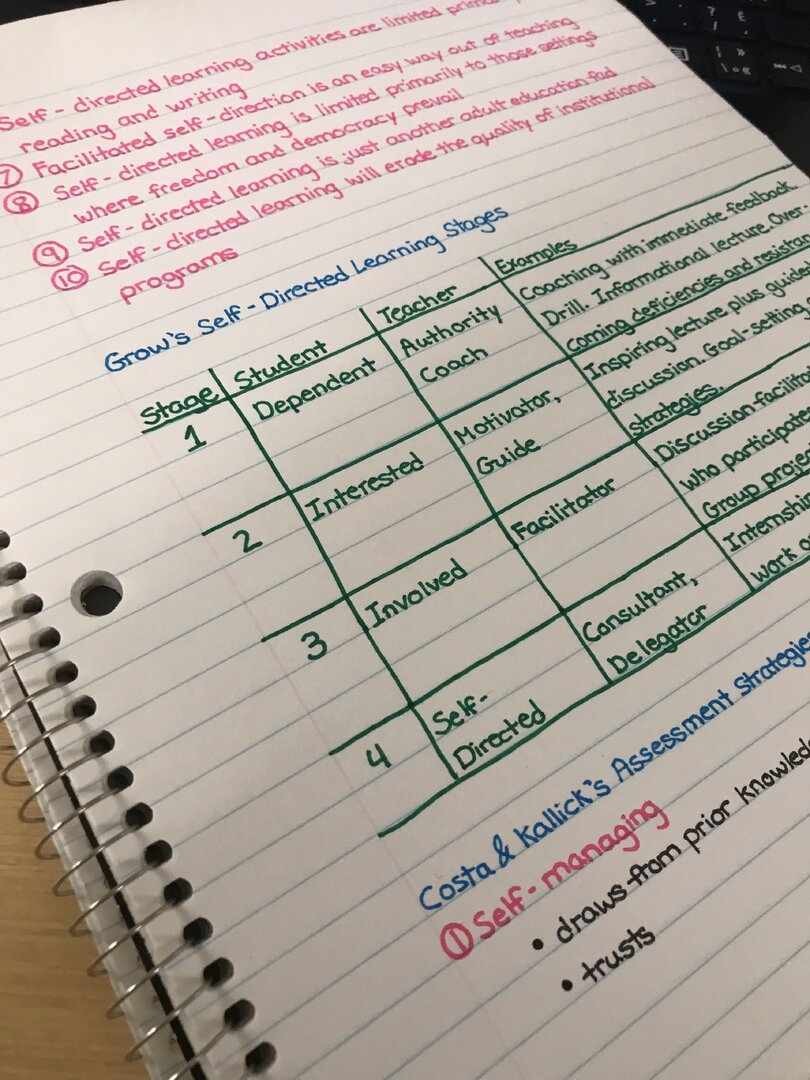 Self-directed learning activities are limited
reading and writing
7 Facilitated self-direction is an easy way out of teaching
8 Self-directed learning is limited primarily to those settings
where freedom and democracy prevail
9 Self-directed learning is just another adult education fad
10 Self-directed learning will erode the quality of institutional
programs
Grow's Self-Directed Learning Stages
Stage Student Teacher Examples
1 Dependent Authority Coach Coaching with immediate feedback.
Drill. Informational lecture. Over-
coming deficiencies and
2 Interested Motivator, Guide Inspiring lecture plus guided
discussion. Goal-setting
strategies.
3 Involved Facilitator
who participate
Group
4 Self-Directed Consultant, Delegator
work
Costa & Kallick's Assessment Strategies
1 Self-managing
• draws from prior
• trusts